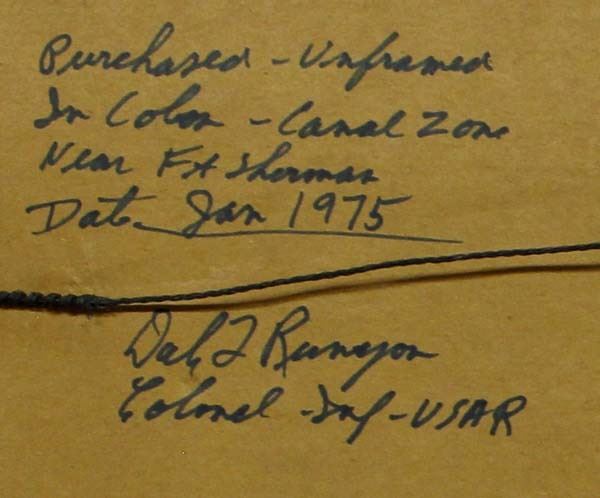 Purchased - Unframed
In Colon - Canal Zone
Near Ft Sherman
Date Jan 1975
Dale F Runyon
Colonel - Inf - USAR